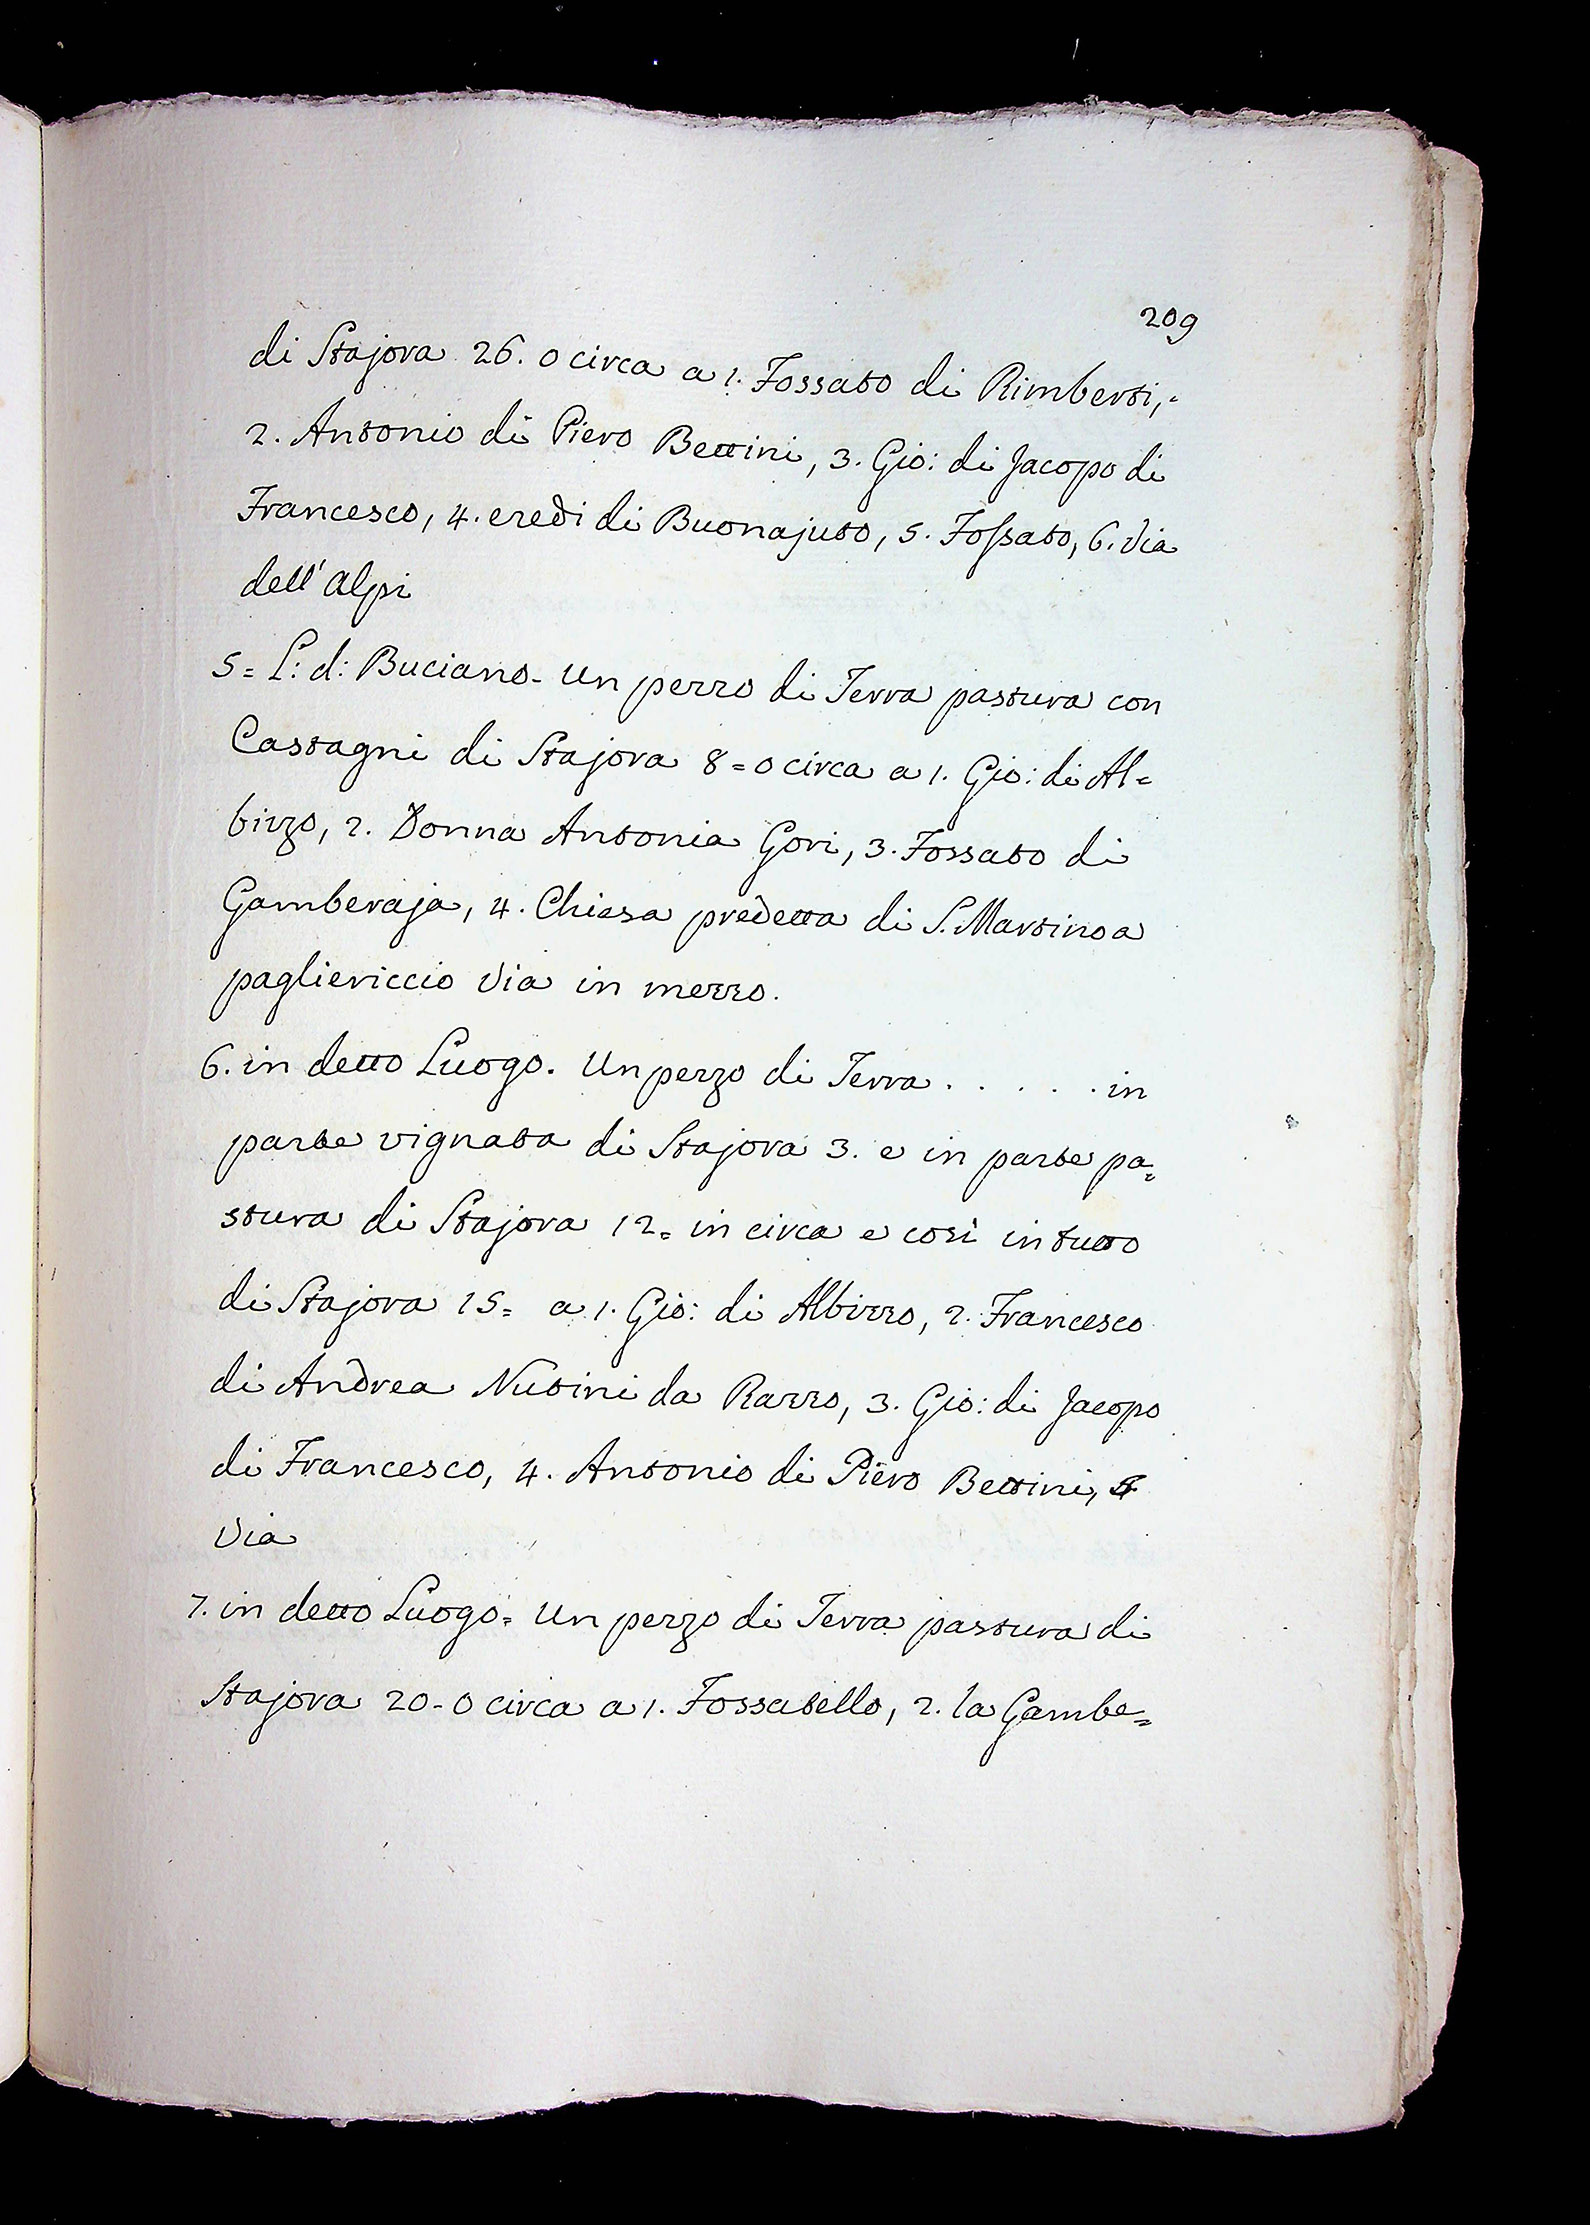 209
di Stajora 26. o circa a 1. Fossato di Rimberti,
2. Antonio di Piero Bettini, 3. Gio: di Jacopo di
Francesco, 4. eredi di Buonajuto, 5. Fossato, 6. Via
dell'alpi
5= L: d: Buciano- Un pezzo di Terra pastura con
Castagni di Stajora 8=o circa a 1. Gio: di Al=
bizzo, 2. Donna Antonia Gori, 3. Fossato di
Gamberaja, 4. Chiesa predetta di S. Martino a
pagliericcio Via in mezzo.
6. in detto Luogo. Un pezzo di Terra . . . . . in
parte vignata di Stajora 3. e in parte pa=
stura di Stajora 12= in circa e così in tutto
di Stajora 15= a 1. Gio: di Albizzo, 2. Francesco
di Andrea Nutini da Razzo, 3. Gio: di Jacopo
di Francesco, 4. Antonio di Piero Bettini, 5
Via
7. in detto Luogo= Un pezzo di Terra pastura di
Stajora 20-o circa a 1. Fossatello, 2. la Gambe=